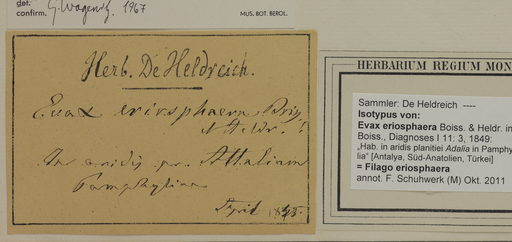 det.
confirm. G. Wagenitz 1967
MUS. BOT. BEROL.
Herb. De Heldreich.
Evax eriosphaera Boiss.
et Heldr. !
In aridis pr. Attaliam
Pamphyliae
April 1845.
HERBARIUM REGIUM MON
Sammler: De Heldreich ----
Isotypus von:
Evax eriosphaera Boiss. & Heldr. in
Boiss., Diagnoses I 11: 3, 1849;
„Hab. in aridis planitiei Adalia in Pamphy
lia“ [Antalya, Süd-Anatolien, Türkei]
= Filago eriosphaera
annot. F. Schuhwerk (M) Okt. 2011